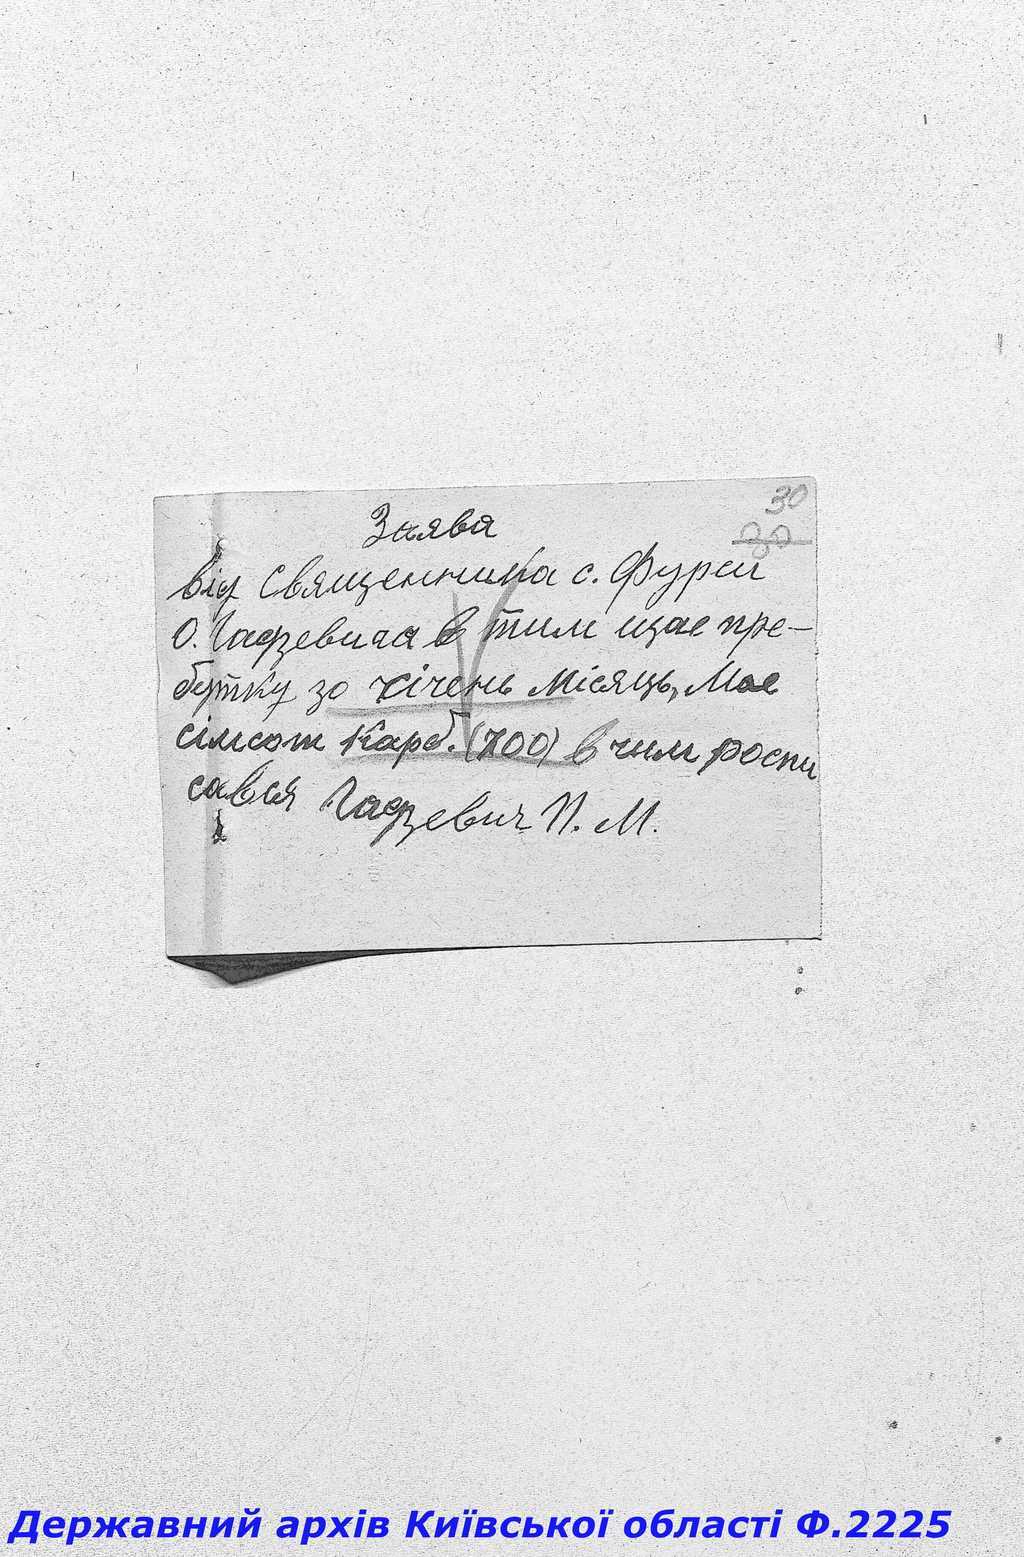 30
30
Заява
від Священника с. Фурси
О. Гадзевича в тим щае пре-
бутку зо січень місяць, Має
сімсот карб. (700) в чим роспи
сався Гадзевич П. М.
Державний архів Київської області Ф.2225